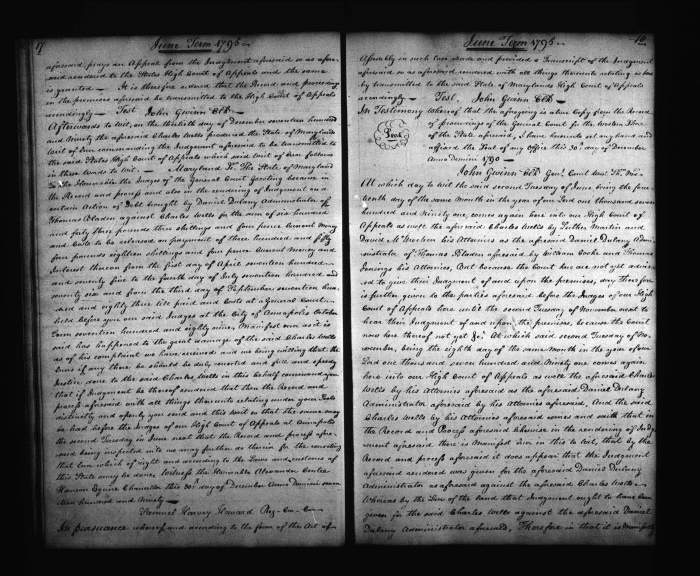 17
June Term 1795
aforesaid prays an Appeal from the Judgment aforesaid so as afore-
said rendered to the States High Court of Appeals and the same
is granted — It is therefore ordered that the Record and proceedings
in the premises aforesaid be transmitted to the High Court of Appeals
accordingly — Test John Gwinn Clk
Afterwards to wit, on the thirtieth day of December seventeen hundred
and Ninety the aforesaid Charles Wells produced the State of Maryland
Writ of Error commanding the Judgment aforesaid to be transmitted to
the said States High Court of Appeals which said writ of Error follows
in these words to wit. — Maryland Sc. The State of Maryland
To the Honorable the Judges of the General Court Greeting because in
the Record and process and also in the rendering of Judgment on a
certain Action of Debt brought by Daniel Dulany Administrator of
Thomas Bladen against Charles Wells for the sum of six hundred
and forty three pounds three shillings and four pence Current money
and Costs to be released on payment of three hundred and fifty
four pounds eighteen shillings and four pence Current Money and
Interest thereon from the first day of April seventeen hundred
and seventy five to the fourth day of July seventeen hundred and
seventy six and from the third day of September seventeen hun-
dred and eighty three till paid and Costs at a General Court
held before you our said Judges at the City of Annapolis October
Term seventeen hundred and eighty nine, Manifest error as it is
said has happened to the great damage of the said Charles Wells
as of his complaint we have received and we being willing that the
Error if any there be should be duly corrected and full and speedy
Justice done to the said Charles Wells in this behalf command you
that if Judgment be thereof rendered that then the Record and
process aforesaid with all things thereunto relating under your Seals
distinctly and openly you send and this Writ so that the same may
be had before the Judges of our High Court of Appeals at Annapolis
the second Tuesday in June next that the Record and process afore-
said being inspected we may further do therein for the correcting
that Error which of right and according to the Laws and customs of
this State may be done. Witness the Honorable Alexander Contee
Hanson Esquire Chancellor this 30th day of December Anno Domini seven-
teen hundred and Ninety —
Samuel Harvey Howard Reg. Cur. Can.
In pursuance whereof and according to the form of the Act of
June Term 1795
Assembly in such case made and provided a Transcript of the Judgment
aforesaid so as aforesaid rendered with all things thereunto relating is here
by transmitted to the said State of Marylands High Court of Appeals
accordingly — Test, John Gwinn Clk
In Testimony whereof that the aforegoing is a true Copy from the Record
of proceedings of the General Court for the Western Shore
of the State aforesaid, I have hereunto set my hand and
affixed the Seal of my Office this 30th day of December
Anno Domini 1790 —
Seal
John Gwinn Clk Genl. Court
At which day to wit the said second Tuesday of June being the four-
teenth day of the same Month in the year of our Lord One thousand seven
hundred and Ninety one comes again here into our High Court of
Appeals as well the aforesaid Charles Wells by Luther Martin and
David McMechen his Attornies as the aforesaid Daniel Dulany Admi-
nistrator of Thomas Bladen aforesaid by William Cooke and Thomas
Jenings his Attornies, But because the Court here are not yet advi-
sed to give their Judgment of and upon the premises, day therefore
is further given to the parties aforesaid before the Judges of our High
Court of Appeals here until the second Tuesday of November next to
hear their Judgment of and upon the premises, because the Court
now here thereof not yet &c. At which said second Tuesday of No-
vember, being the eighth day of the same Month in the year of our
Lord One thousand seven hundred and Ninety one comes again
here into our High Court of Appeals as well the aforesaid Charles
Wells by his Attornies aforesaid as the aforesaid Daniel Dulany
Administrator aforesaid by his Attornies aforesaid, And the said
Charles Wells by his Attornies aforesaid comes and saith that in
the Record and Process aforesaid likewise in the rendering of Judg-
ment aforesaid there is Manifest Error in this to wit, that by the
Record and process aforesaid it does appear that the Judgment
aforesaid rendered was given for the aforesaid Daniel Dulany
Administrator as aforesaid against the aforesaid Charles Wells
Whereas by the Law of the land that Judgment ought to have been
given for the said Charles Wells against the aforesaid Daniel
Dulany Administrator aforesaid, Therefore in that it is Manifestly